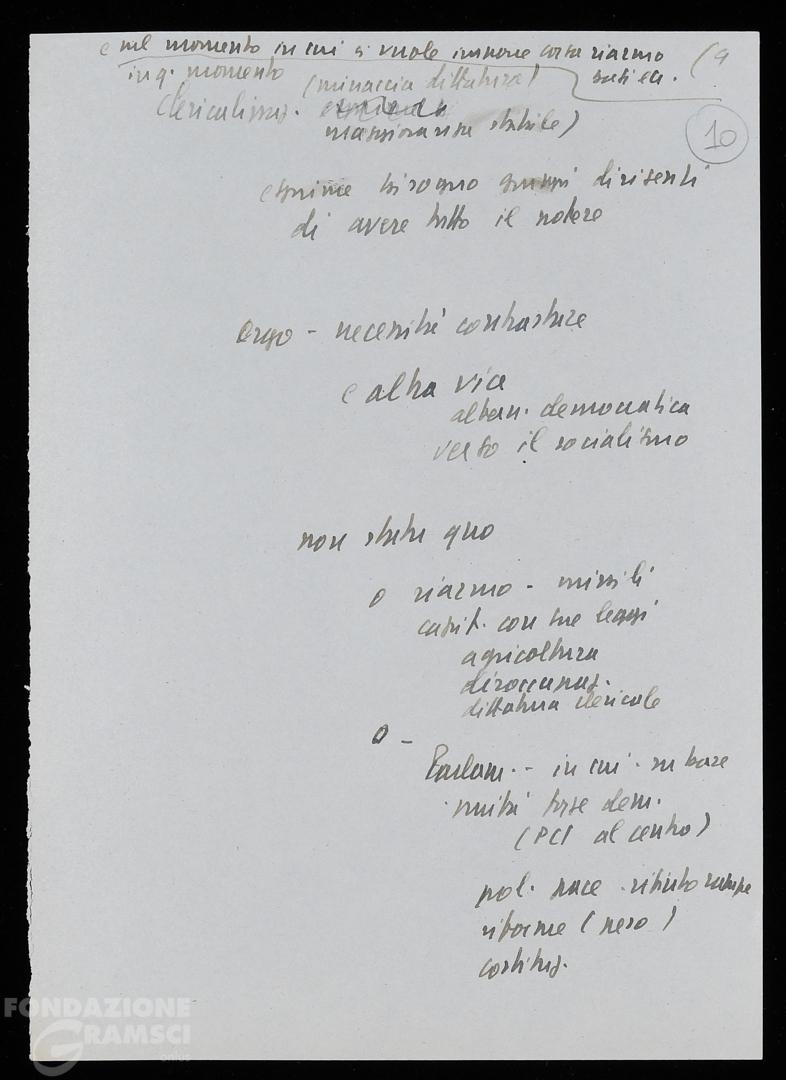 e nel momento in cui si vuole imporre corsa riarmo (9
in q. momento (minaccia dittatura)
Clericalismo.
maggioranza stabile)
10
esprime bisogno gruppi dirigenti
di avere tutto il potere
ergo - necessità contrastare
e altra vice
altern. democratica
verso il socialismo
non statu quo
o riarmo - missili
capit. con sue leggi
agricoltura
disoccupaz.
dittatura clericale
o -
Parlam. - in cui su base
unità forze dem.
(PCI al centro)
pol. pace - rifiuto rampe
riforme (nero)
costituz.
FONDAZIONE
GRAMSCI
onlus